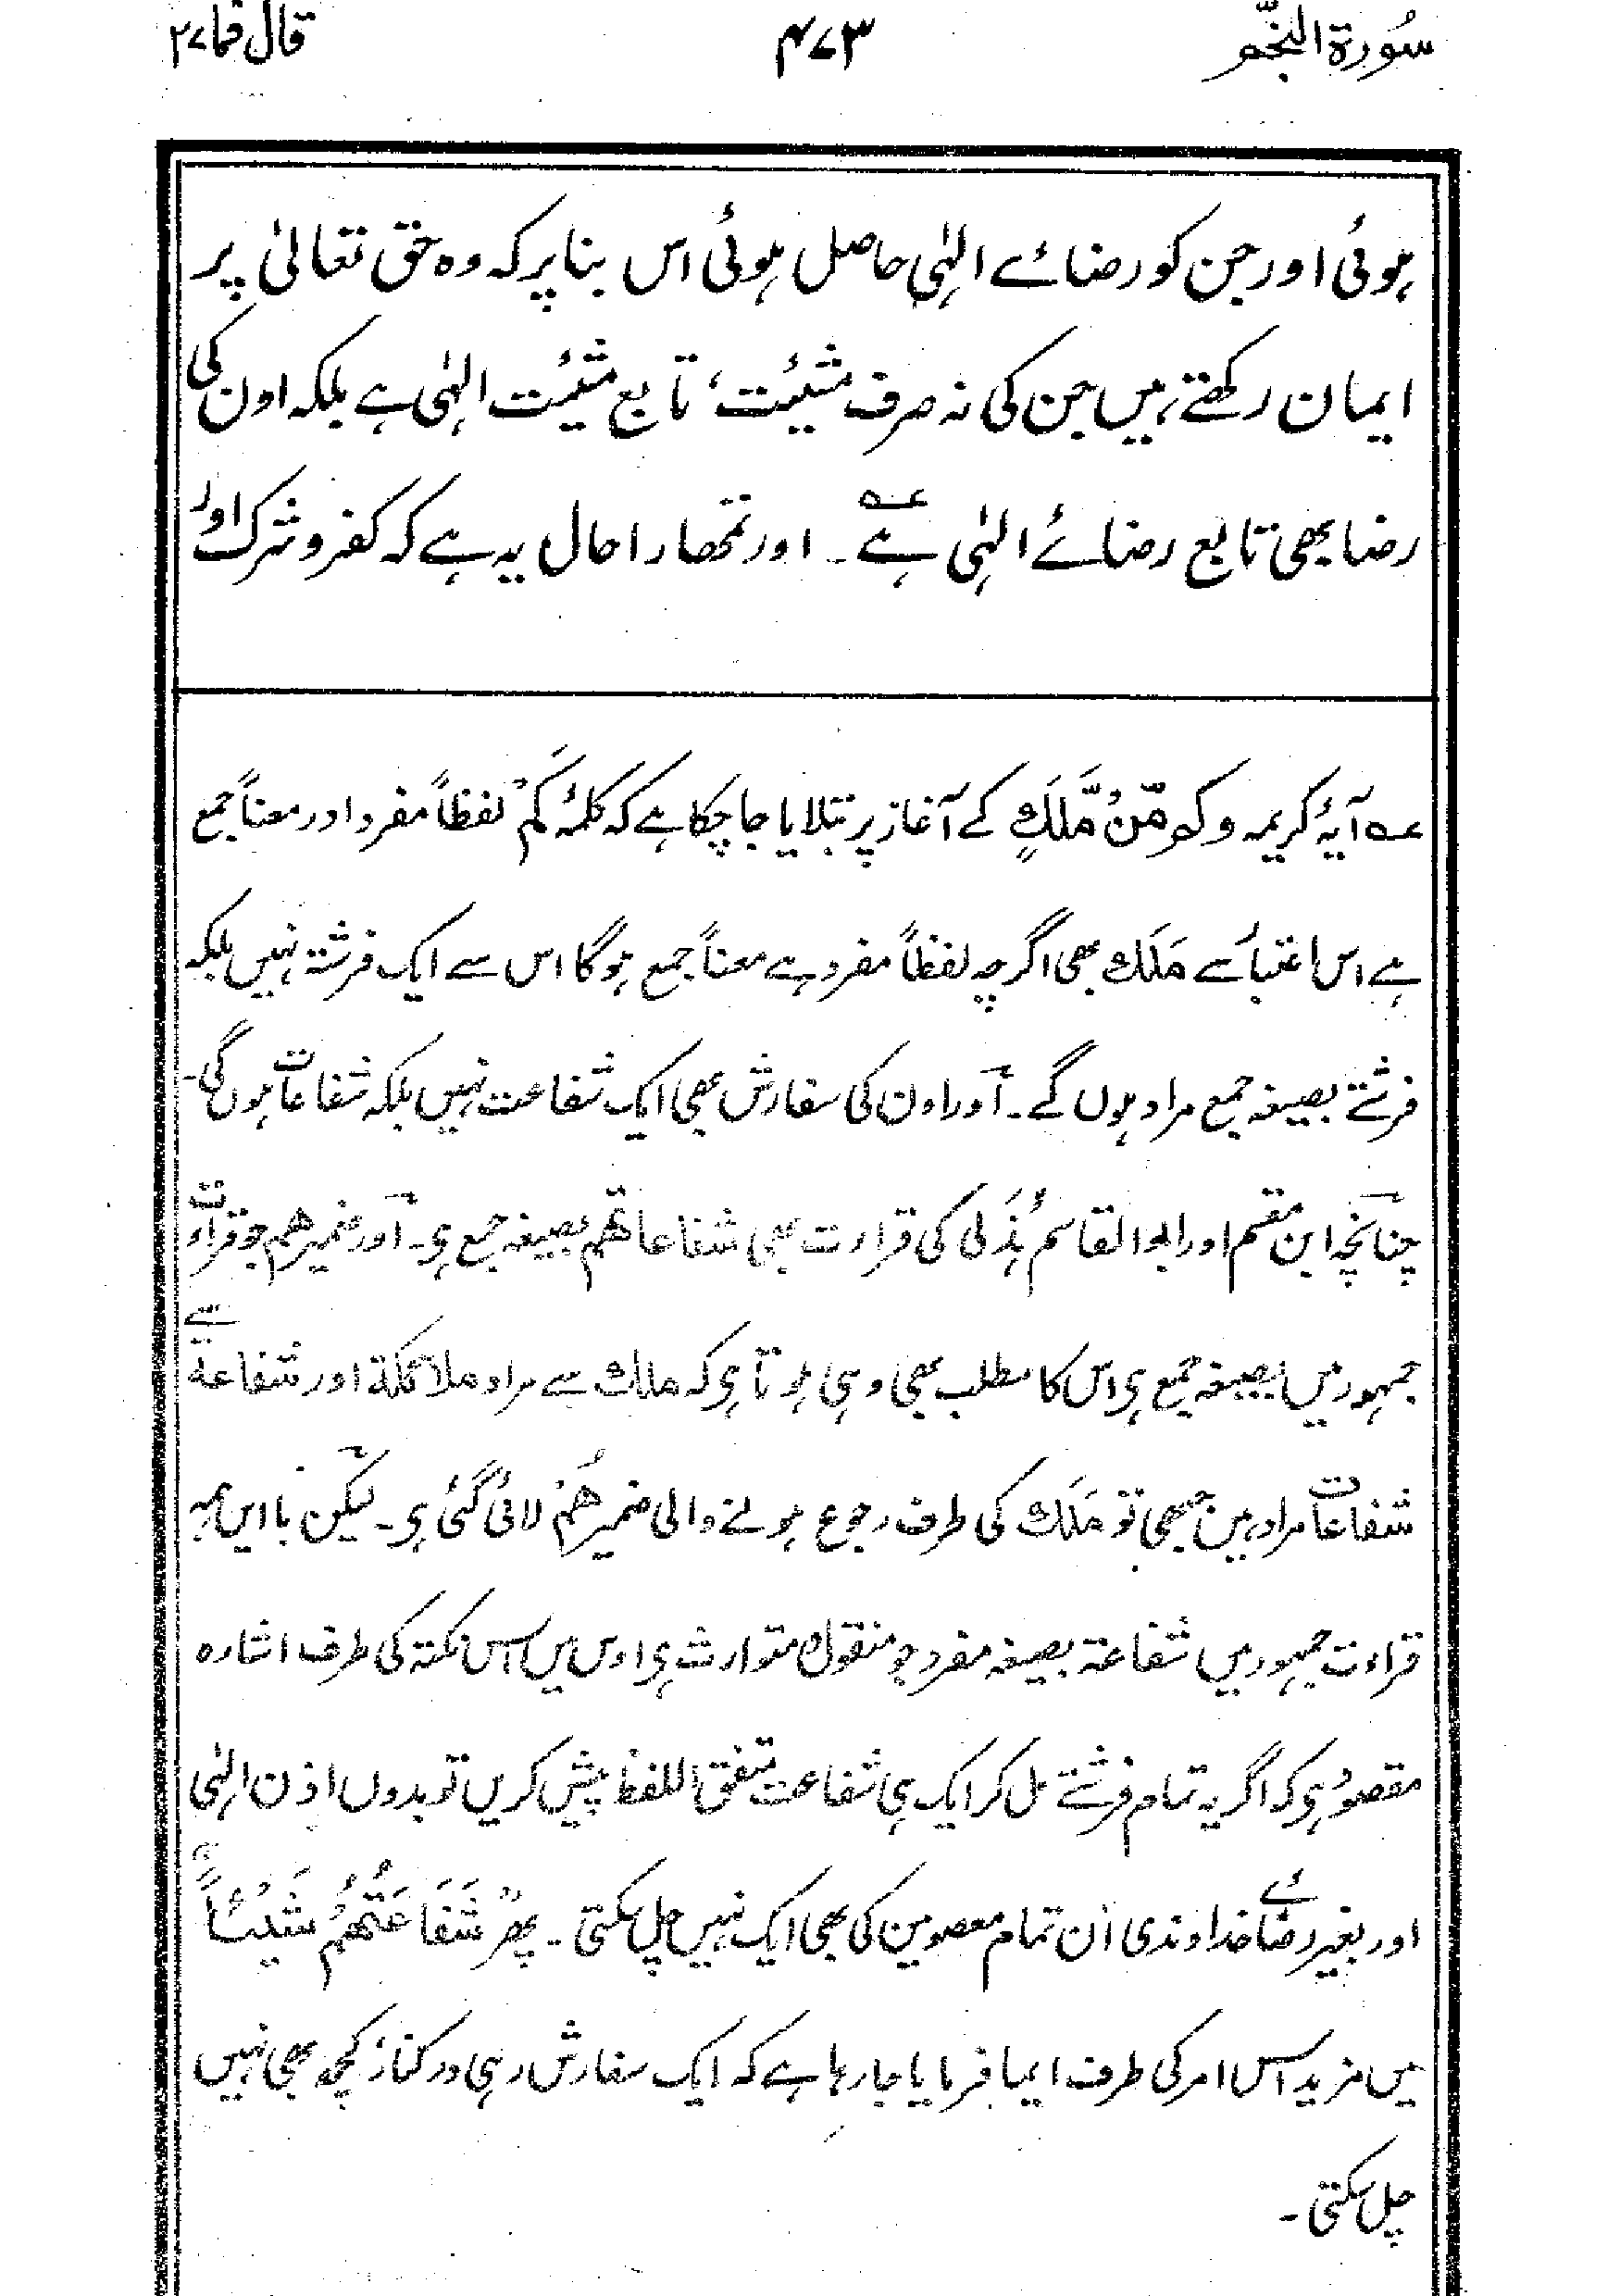 سُورۃ النجم ۴۷۳ قال فما ۲۷
ہوئی اور جن کو رضائے الہٰی حاصل ہوئی اس بنا پر کہ وہ حق تعالیٰ پر
ایمان رکھتے ہیں جن کی نہ صرف مشیئت، تابع مشیئت الہٰی ہے بلکہ اون کی
رضا بھی تابع رضائے الہٰی ہے عہ۔ اور تمھارا حال یہ ہے کہ کفر و شرک اور
عہ آیۂ کریمہ وکم مِّنْ مَّلَكٍ کے آغاز پر بتلایا جا چکا ہے کہ کلمۂ کَمْ لفظاً مفرد اور معناً جمع
ہے اس اعتبار سے مَلَك بھی اگرچہ لفظاً مفرد ہے معناً جمع ہوگا اس سے ایک فرشتہ نہیں بلکہ
فرشتے بصیغہ جمع مراد ہوں گے۔ اور اون کی سفارش بھی ایک شفاعت نہیں بلکہ شفاعات ہوں گی۔
چنانچہ ابن مقسم اور ابو القاسم ہُذَلی کی قرارت بھی شفاعاتھم بصیغہ جمع ہی۔ اور ضمیر ھم جو قراءت
جمہور میں بصیغہ جمع ہی اس کا مطلب بھی وہی ہوتا ہی کہ ملك سے مراد ملائکۃ اور شفاعۃ سے
شفاعات مراد ہیں جبھی تو مَلَك کی طرف رجوع ہونے والی ضمیر ھُمْ لائی گئی ہی۔ لیکن با این ہمہ
قراءت جمہور میں شفاعۃ بصیغہ مفرد جو منقول متوارث ہی اوس میں اس نکتہ کی طرف اشارہ
مقصود ہی کہ اگر یہ تمام فرشتے مل کر ایک ہی شفاعت متفق اللفظ پیش کریں تو بدوں اذن الہٰی
اور بغیر رضائے خداوندی ان تمام معصومین کی بھی ایک نہیں چل سکتی۔ پھر شَفَاعَتُهُمْ شَيْئًا
میں مزید اس امر کی طرف ایما فرمایا جا رہا ہے کہ ایک سفارش رہی در کنار، کچھ بھی نہیں
چل سکتی۔